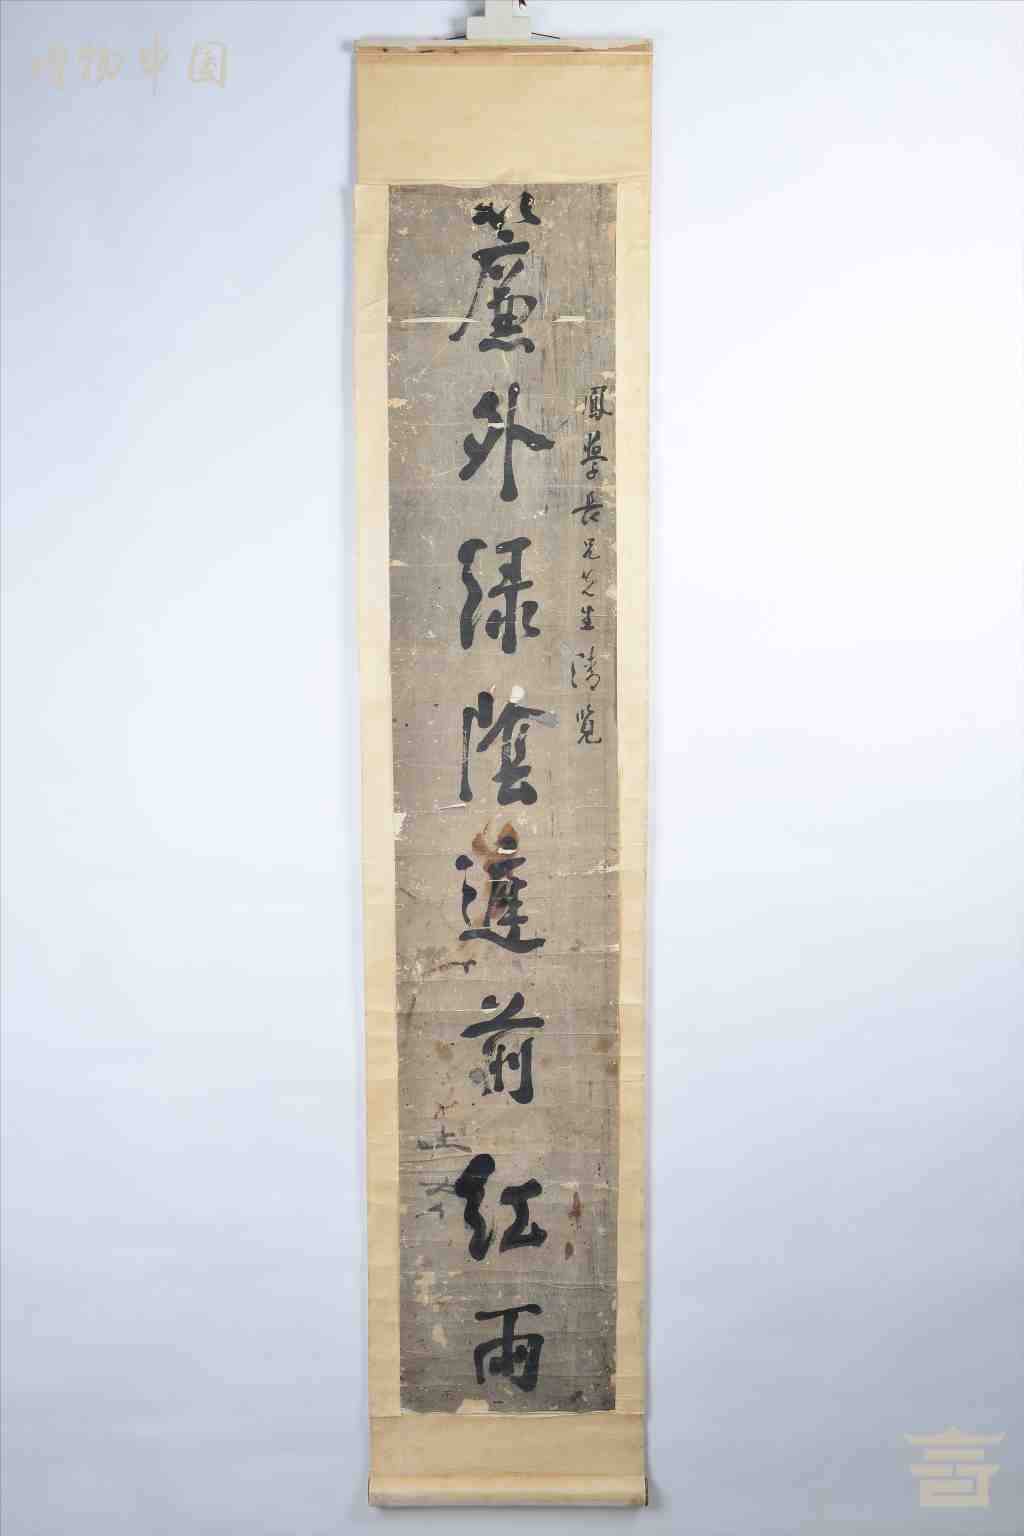 博物中国
鳳學長兄先生清覽
簾外綠陰前紅雨